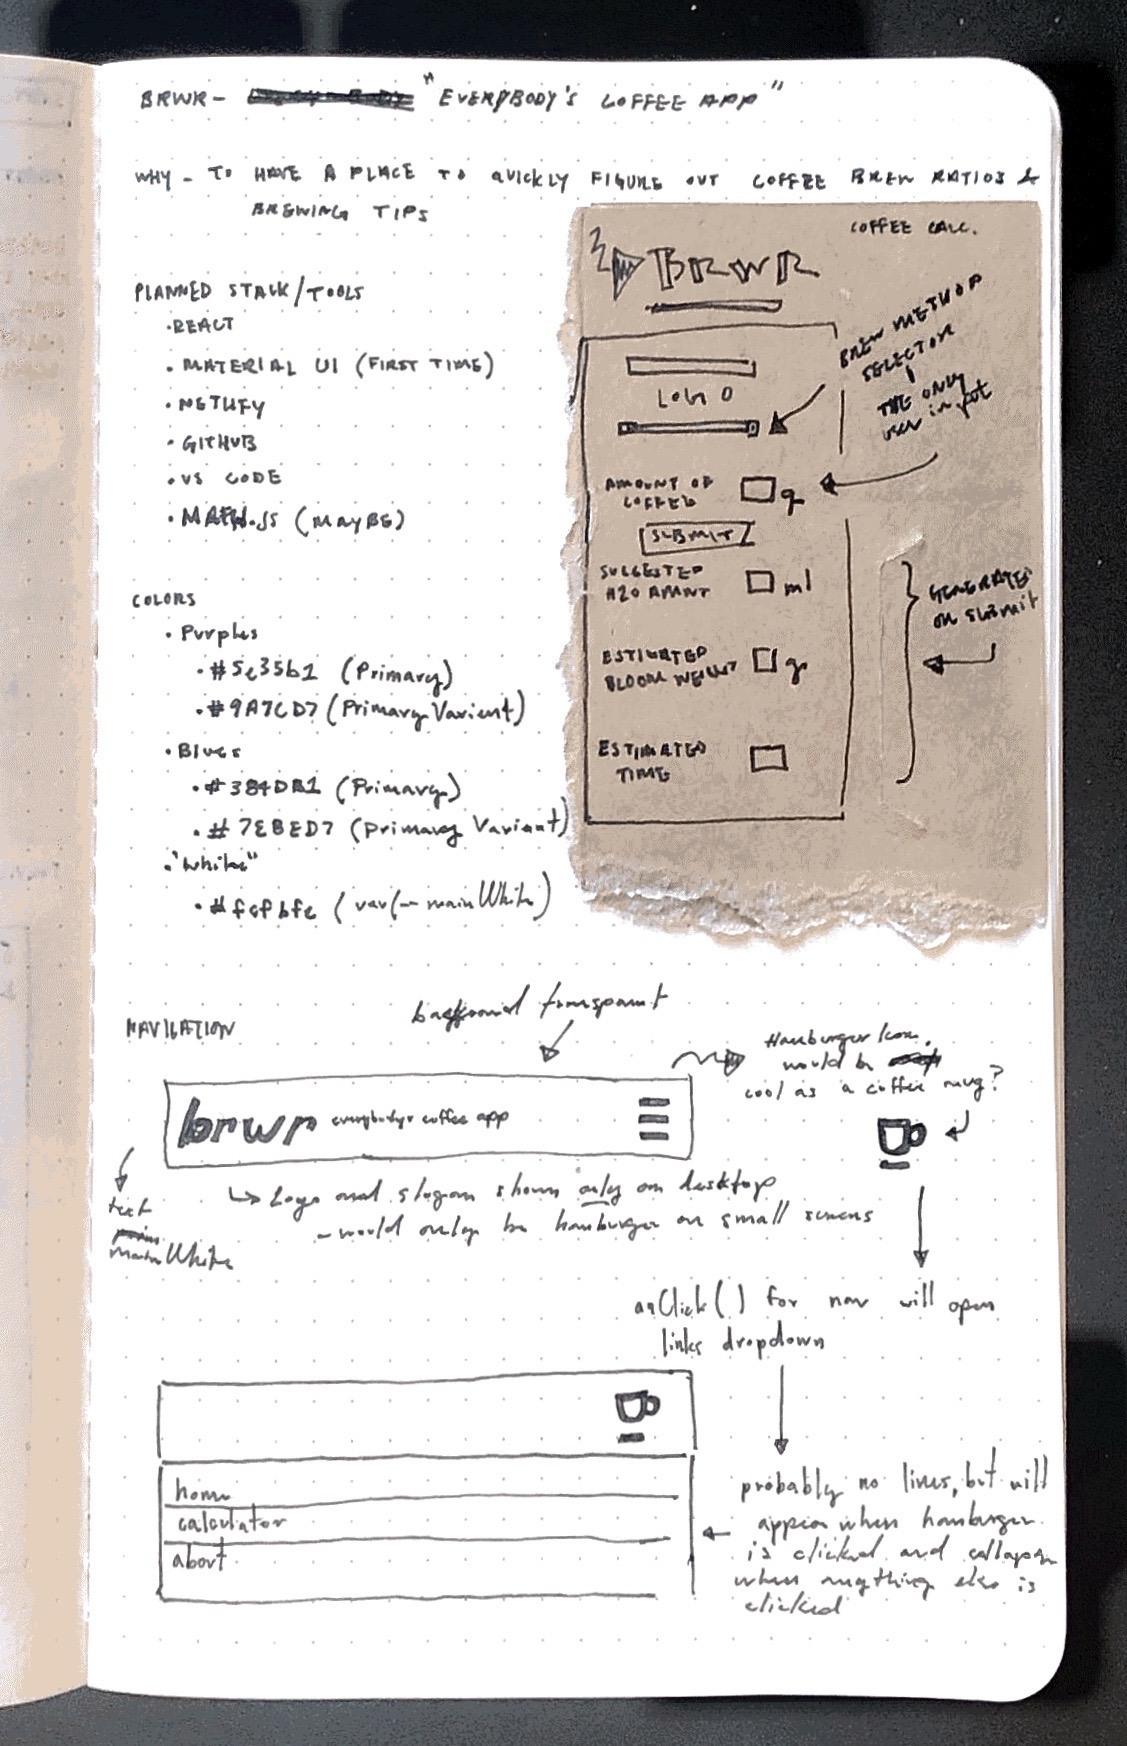 BRWR- "EVERYBODY'S COFFEE APP"
WHY - TO HAVE A PLACE TO QUICKLY FIGURE OUT COFFEE BREW RATIOS &
BREWING TIPS
PLANNED STACK/TOOLS
• REACT
• MATERIAL UI (FIRST TIME)
• NETLIFY
• GITHUB
• VS CODE
• MATH.JS (MAYBE)
COLORS
• Purples
• #5e35b1 (Primary)
• #9A7CD7 (Primary Varient)
• Blues
• #384DB1 (Primary)
• #7E8ED7 (Primary Variant)
• "White"
• #fcfbfe (var(--mainWhite)
COFFEE CALC.
BRWR
LOGO
BREW METHOD
SELECTOR
THE ONLY
user input
AMOUNT OF
COFFEE
g
SUBMIT
SUGGESTED
H2O AMNT
ml
ESTIMATED
BLOOM WEIGHT
g
ESTIMATED
TIME
GENERATED
ON SUBMIT
NAVIGATION
background transparent
brwr everybodys coffee app
Hamburger Icon.
would be
cool as a coffee mug?
text
mainWhite
Logo and slogan shown only on desktop
- would only be hamburger on small screens
onClick() for now will open
links dropdown
home
calculator
about
probably no lines, but will
appear when hamburger
is clicked and collapse
when anything else is
clicked